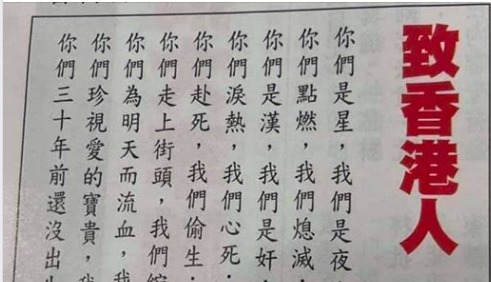 致香港人
你們是星，我們是夜
你們點燃，我們熄滅．
你們是漢，我們是奸．
你們淚熱，我們心死．
你們赴死，我們偷生．
你們走上街頭，我們
你們為明天而流血，我
你們珍視愛的寶貴，我
你們三十年前還沒出